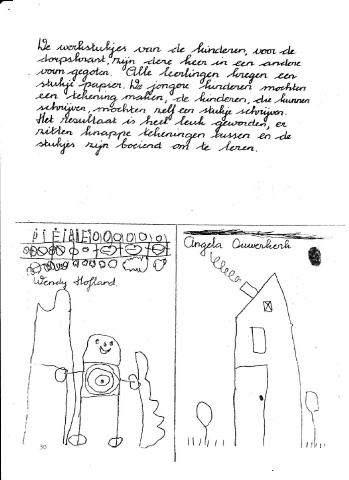 De werkstukjes van de kinderen, voor de
dorpskrant, zijn deze keer in een andere
vorm gegoten. Alle leerlingen kregen een
stukje papier. De jongere kinderen mochten
een tekening maken, de kinderen, die kunnen
schrijven, mochten zelf een stukje schrijven.
Het resultaat is heel leuk geworden, er
zitten knappe tekeningen tussen en de
stukjes zijn boeiend om te lezen.
Wendy Hofland
Angela Ouwerkerk
30